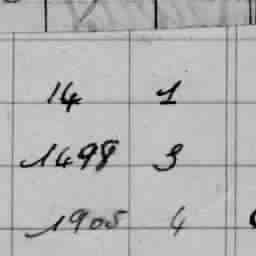 14 1
1498 3
1905 4